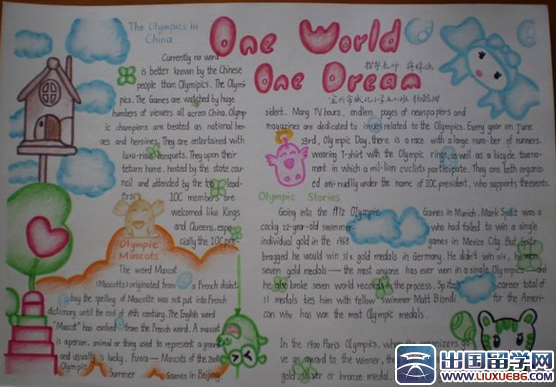 The Olympics in
China
One World
One Dream
Currently no word
is better known by the Chinese
people than Olympics. The Olym
pics. The Games are watched by huge
numbers of viewers all across China. Olymp
ic champions are treated as national her-
oes and heroines. They are entertained with
banquets. They upon their
return home, hosted by the state coun
cil and attended by the top lead-
IOC members are
welcomed like Kings
and Queens, espe
cially the IOC pre-
sident. Many TV hours, endless pages of newspapers and
magazines are dedicated to issues related to the Olympics. Every year on June
23rd, Olympic Day, there is a race with a large number of runners
wearing T-shirt with the Olympic rings as well as a bicycle tourna-
ment in which a million cyclists participate. They are both organis
ed annually under the name of IOC president, who supports the events.
Olympic Mascots
The word Mascot
(Mascots) originated from a French dialect.
buy the spelling of Mascotte was not put into French
dictionary until the end of 19th century. The English word
"Mascot" has evolved from the French word. A mascot
is a person, animal or thing used to represent a group
and usually is lucky. Fuwa — Mascots of the 2008
Olympic Summer Games in Beijing
Olympic Stories
Going into the 1972 Olympic Games in Munich, Mark Spitz was a
cocky 22-year-old swimmer who had failed to win a single
individual gold in the 1968 games in Mexico City. But Spitz
bragged he would win six gold medals in Germany. He didn't win six, he won
seven gold medals — the most anyone has ever won in a single Olympics — and
he also broke seven world records in the process. Spitz's career total of
11 medals ties him with fellow swimmer Matt Biondi for the Ameri-
can who has won the most Olympic medals.
In the 1900 Paris Olympics, when the organizers
ve an award to the winner, the
gold, silver or bronze medal.
出国留学网
WWW.LIUXUE86.COM